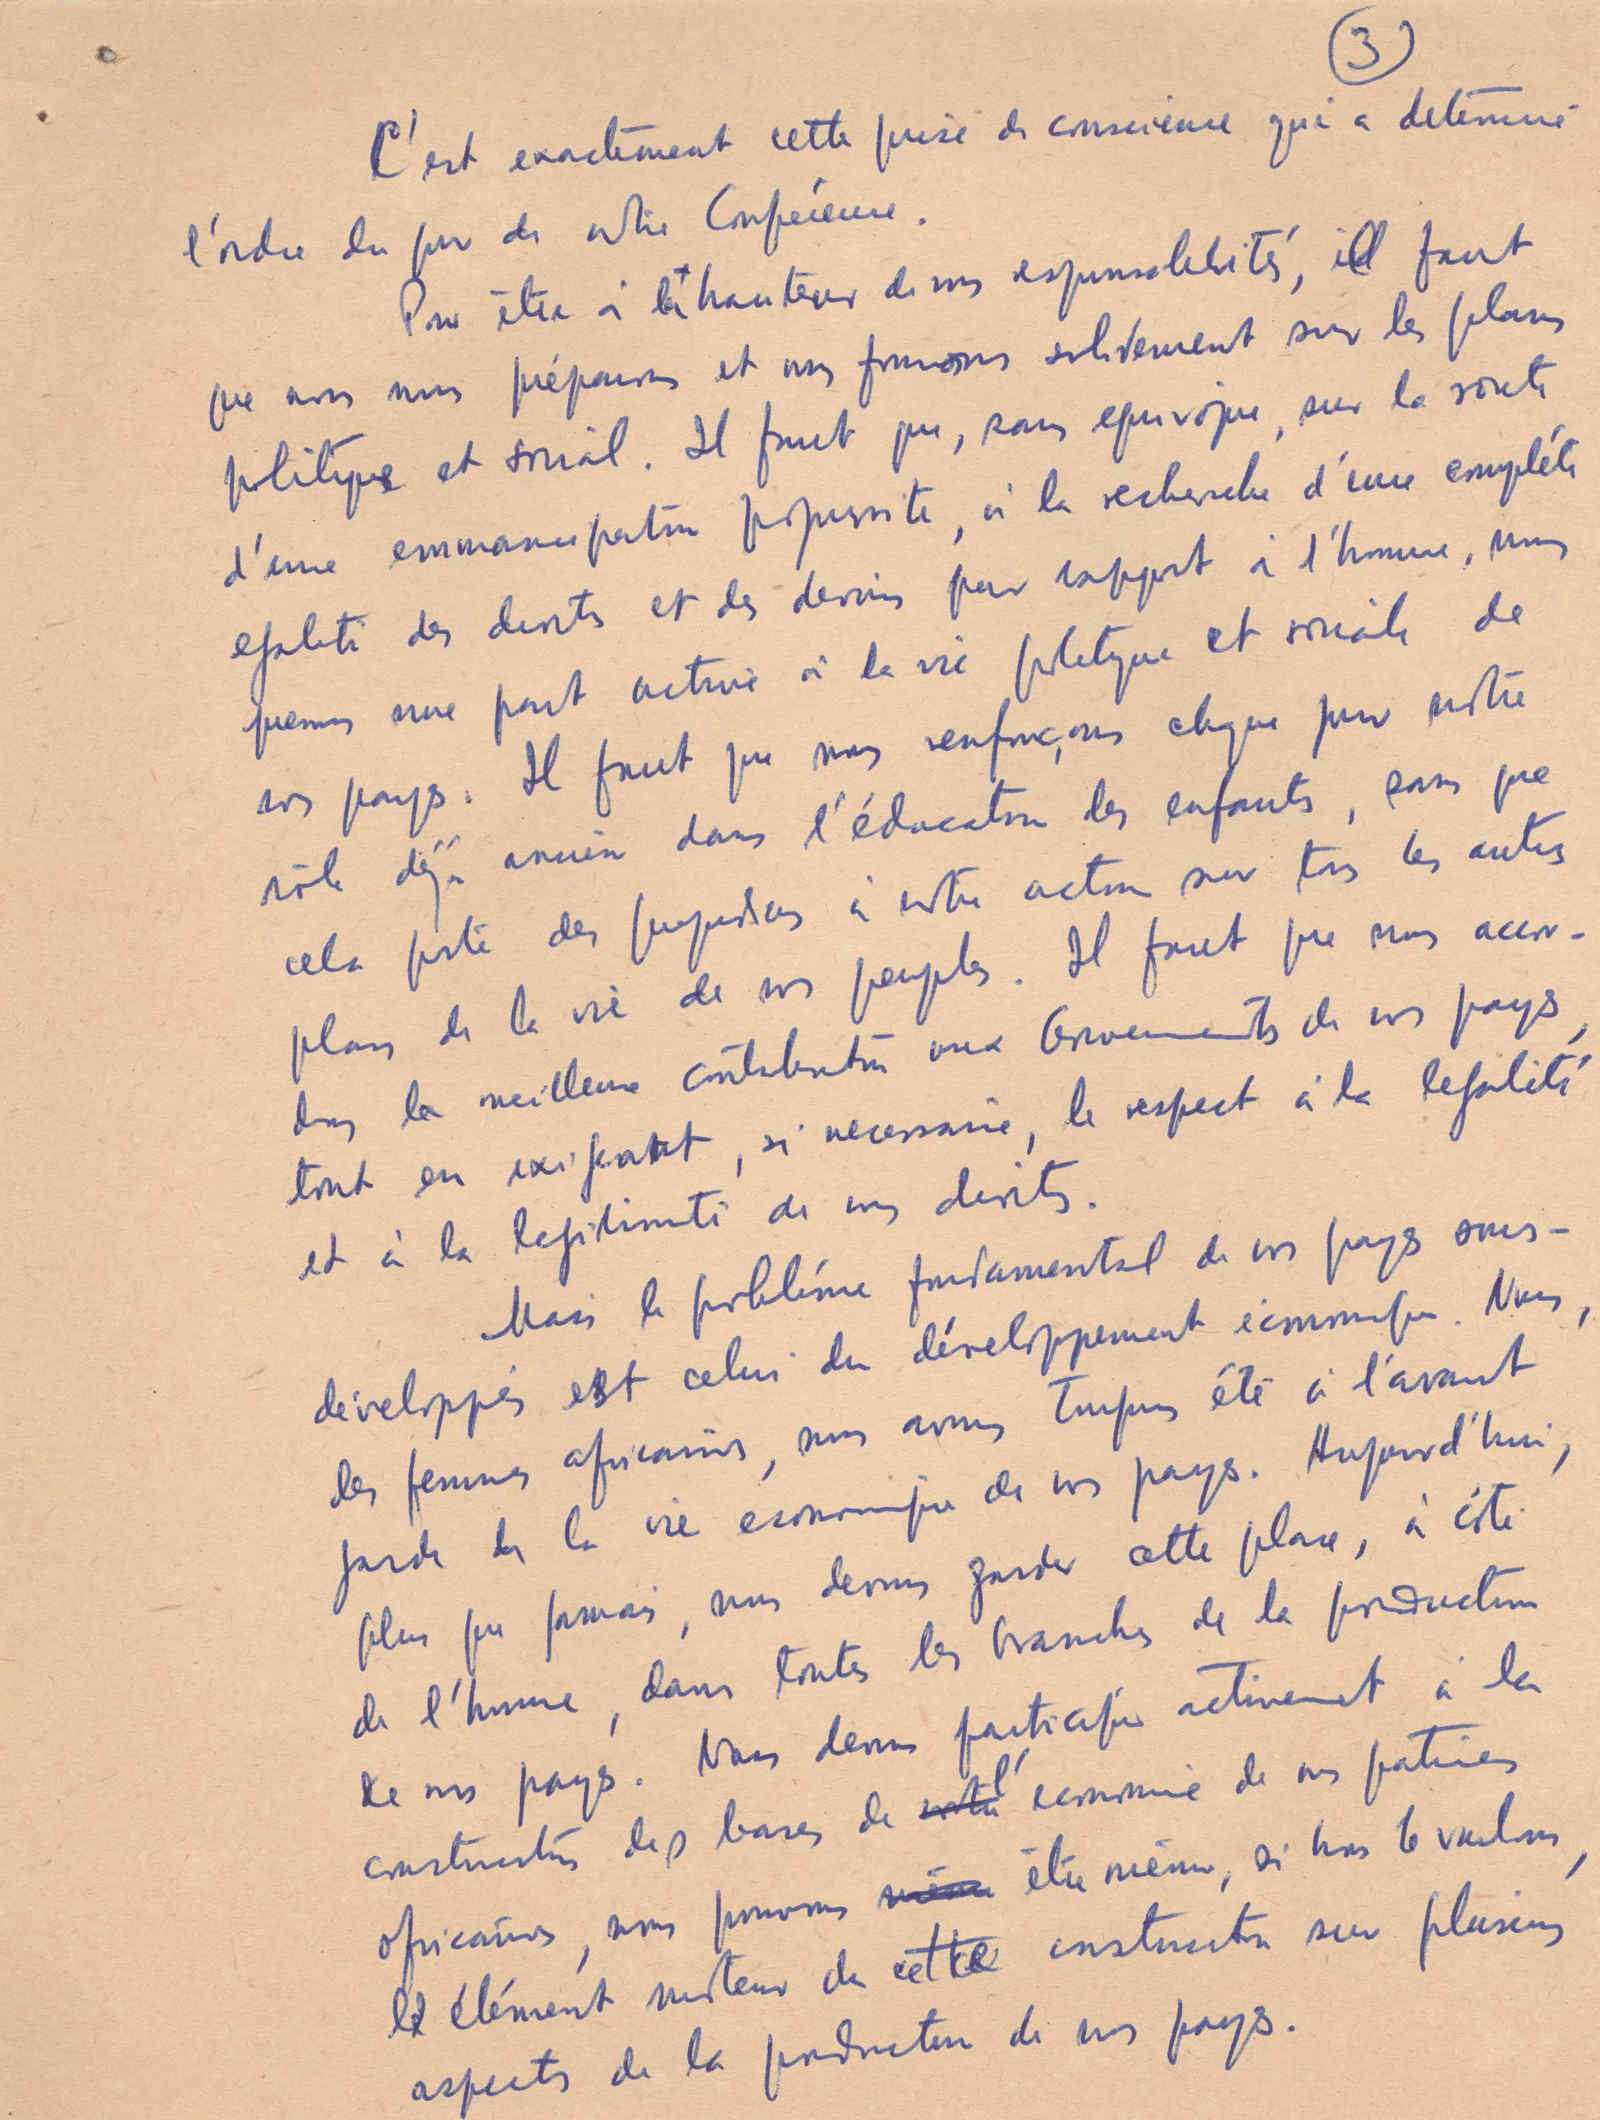 3
C'est exactement cette prise de conscience qui a determiné
l'ordre du jour de notre Conférence.
Pour être à la hauteur de nos responsabilités, il faut
que nous nous préparions et nous formions solidement sur les plans
politique et social. Il faut que, sans equivoque, sur la route
d'une emmancipation progressite, à la recherche d'une compléte
egalité des droits et des devoirs par rapport à l'homme, nous
prenons une part active à la vie politique et sociale de
nos pays. Il faut que nous renforçons chaque jour notre
rôle déjà ancien dans l'éducation des enfants, sans que
cela porte des prejudices à notre action sur tous les autres
plans de la vie de nos peuples. Il faut que nous accor-
dons la meilleure contribution aux Gouvernements de nos pays,
tout en exigeant, si necessaire, le respect à la legalité
et à la legitimité de nos droits.
Mais le probléme fondamental de nos pays sous-
développés est celui du développement économique. Nous,
des femmes africaines, nous avons toujours été à l'avant
garde de la vie economique de nos pays. Aujourd'hui,
plus que jamais, nous devons garder cette place, à côté
de l'homme, dans toutes les branches de la production
de nos pays. Nous devons participer activement à la
construction des bases de notre l'economie de nos patries
africaines, nous pouvons même être même, si nous le voulons,
le élément moteur de cette construction sur plusieurs
aspects de la production de nos pays.